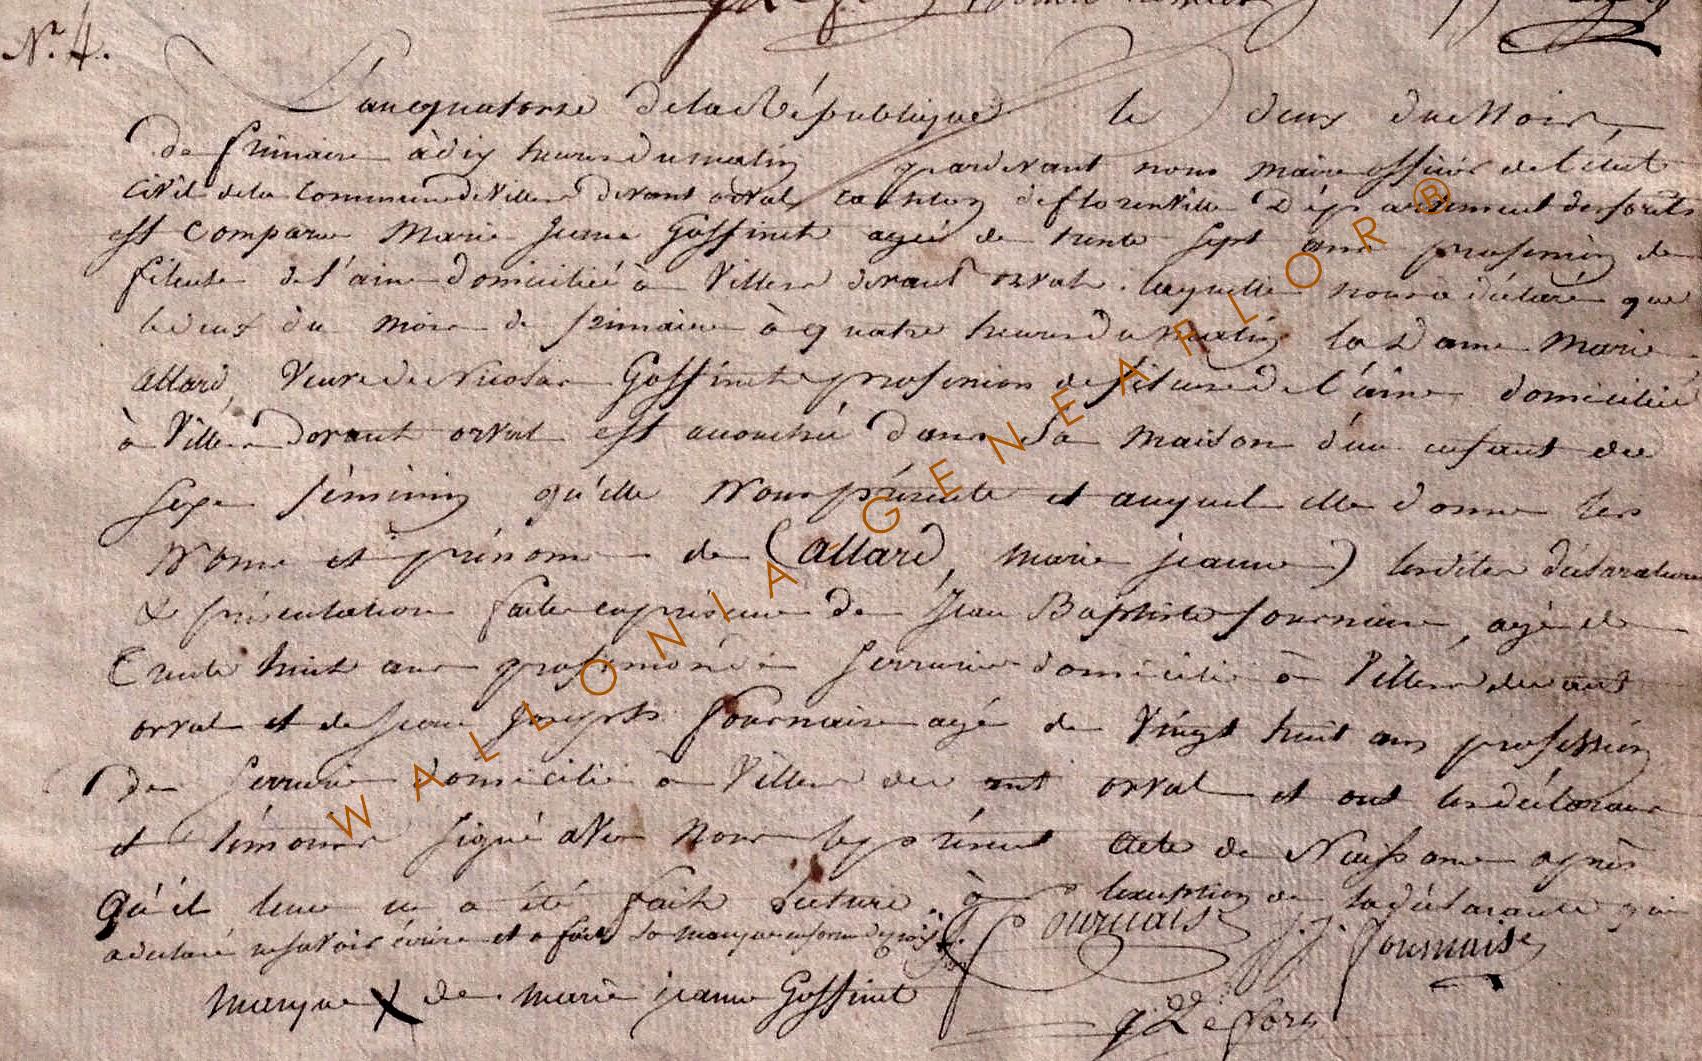 N.° 4.
L'an quatorze de la République le deux du Mois
de frimaire à dix heures du matin pardevant nous maire officier de l'état
civil de la Commune de Villers devant orval canton de florenville Département des forets
est Comparue Marie Jeanne Goffinet agée de trente sept ans profession de
fileuse de l'aine domiciliée à Villers devant orval . laquelle nous a déclaré que
le deux du mois de frimaire à quatre heures du matin la Dame Marie
allard, Veuve de Nicolas Goffinet profession de fileuse de l'aine domiciliée
à Villers devant orval est accouchée dans sa maison d'un enfant du
sexe féminin qu'elle Nous présente et auquel elle donne les
Noms et prénoms de (allard, marie jeanne) lesdites déclaration
& présentation faites en présence de Jean Baptiste fournaise, agé de
trente huit ans profession de serrurier domicilié à Villers devant
orval et de jean joseph fournaise agé de Vingt huit ans profession
de serrurier domicilié à Villers devant orval et ont les déclarant
et témoins signé avec Nous le présent acte de Naissance après
qu'il leur en a été fait lecture. à l'exception de la déclarante qui
a declaré ne savoir écrire et a fait sa marque en forme de croix.
fournaise J. J. fournaise
marque X de marie jeanne Goffinet
WALLONIA GENEARLOR ®